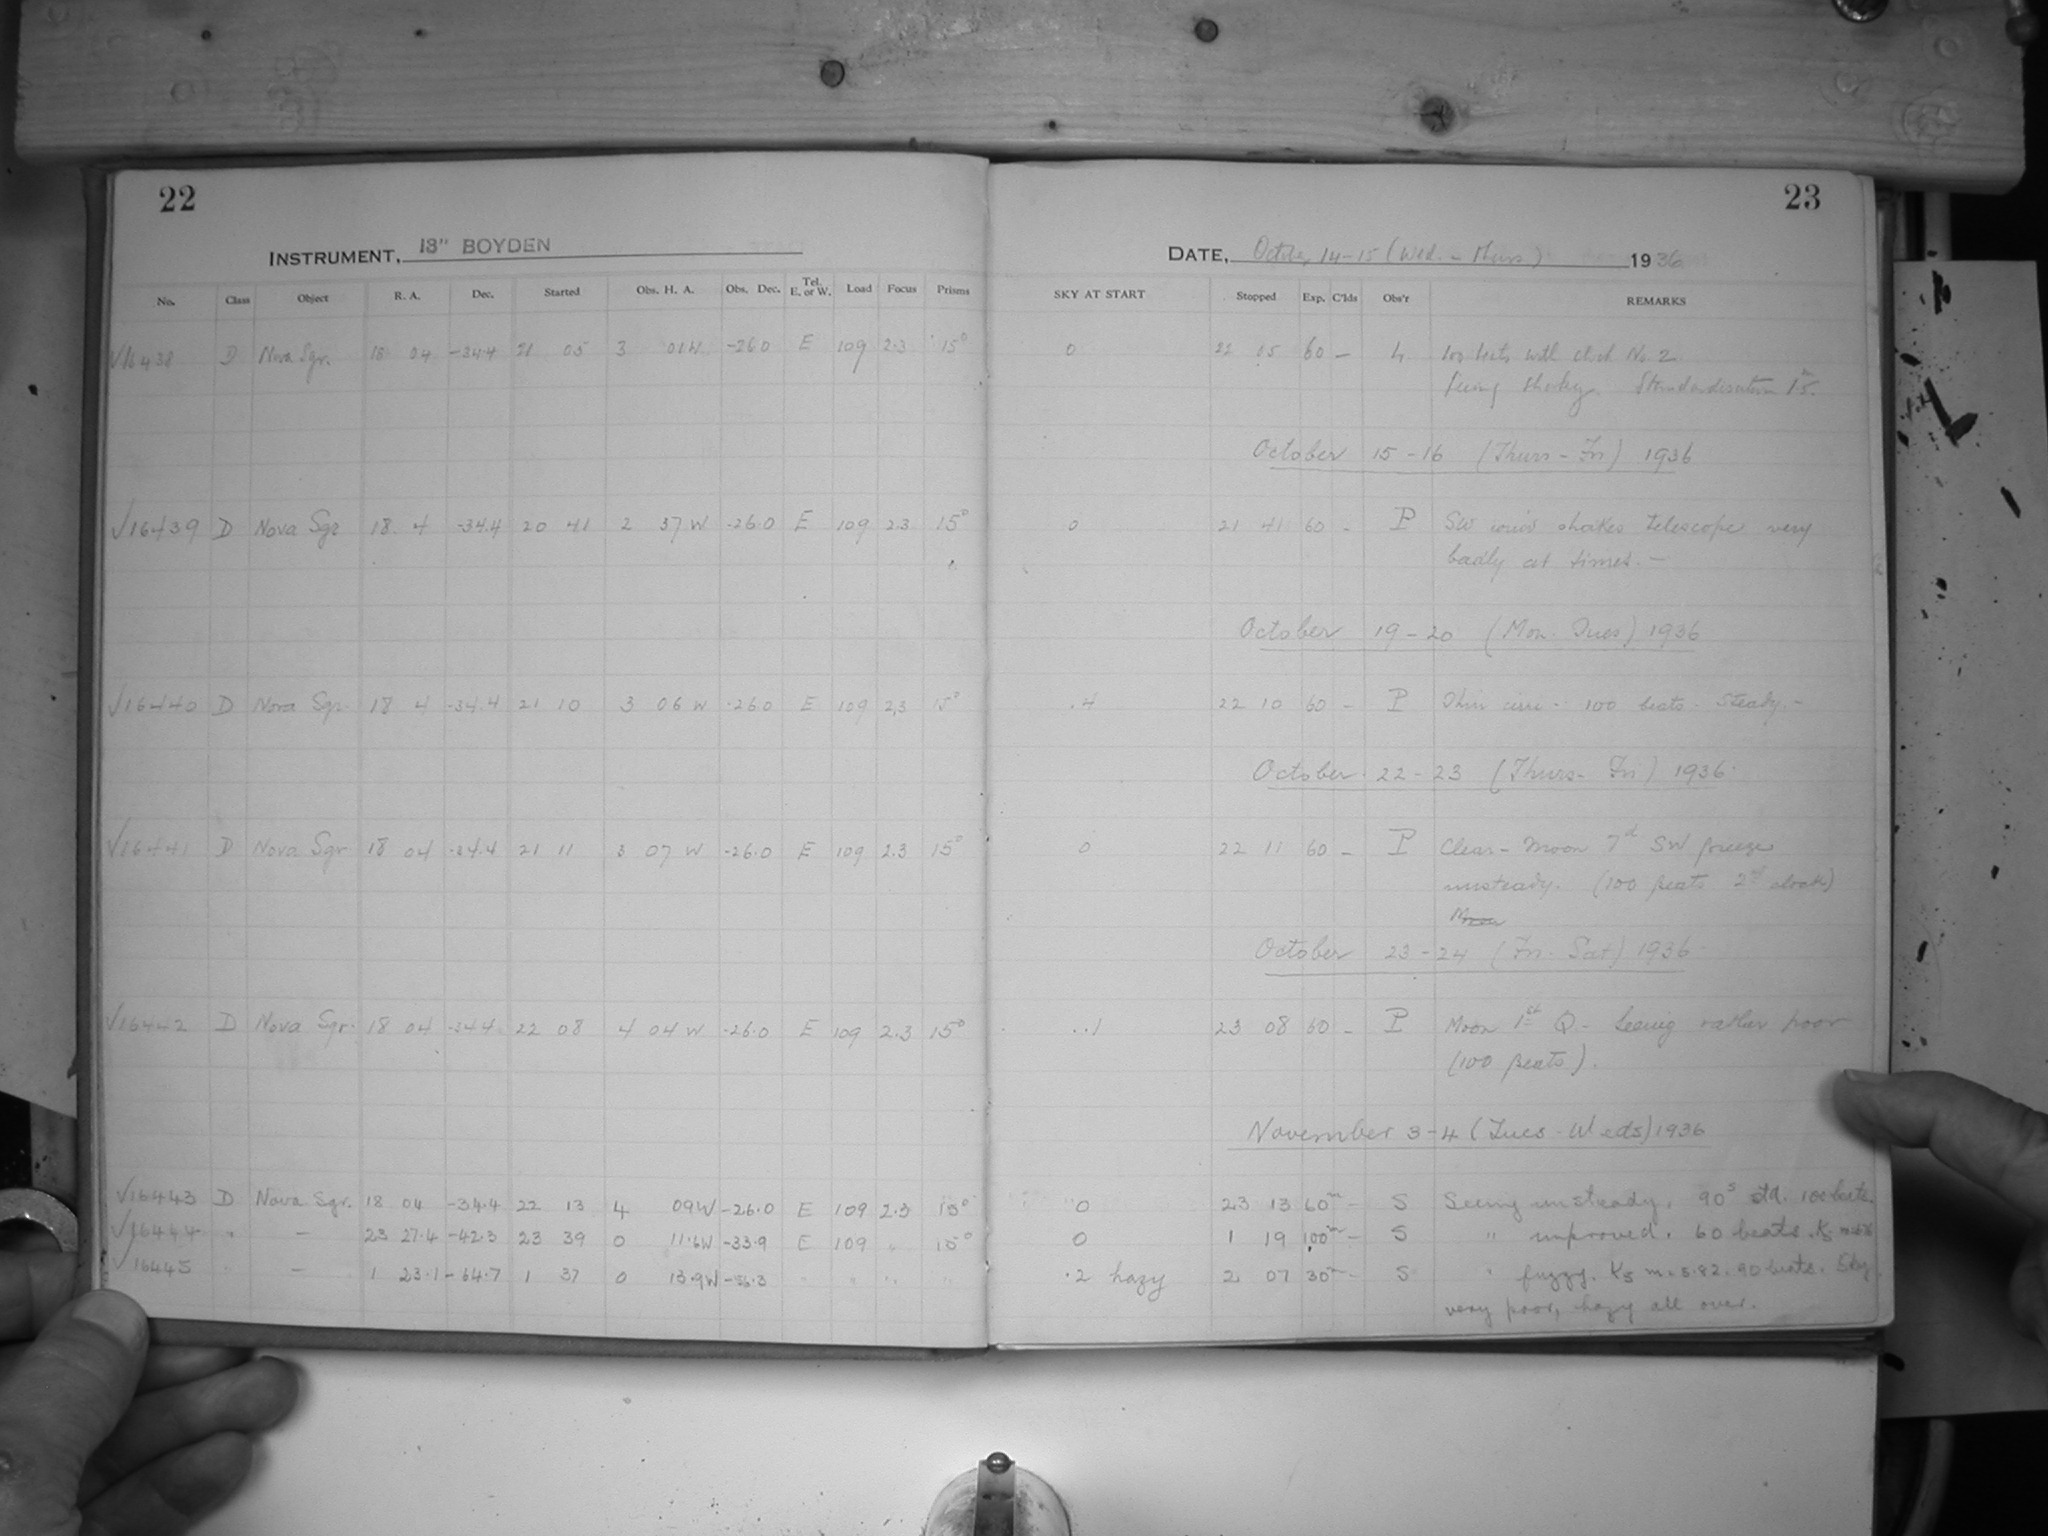 22
INSTRUMENT, 13" BOYDEN
No. Class Object R. A. Dec. Started Obs. H. A. Obs. Dec. Tel. E. or W. Load Focus Prisms
√16438 D Nova Sgr. 18 04 -34.4 21 05 3 01W -26.0 E 109 2.3 15°
√16439 D Nova Sgr 18. 4 -34.4 20 41 2 37 W -26.0 E 109 2.3 15°
√16440 D Nova Sgr. 18 4 -34.4 21 10 3 06 W -26.0 E 109 2.3 15°
√16441 D Nova Sgr 18 04 -34.4 21 11 3 07 W -26.0 E 109 2.3 15°
√16442 D Nova Sgr. 18 04 -34.4 22 08 4 04 W -26.0 E 109 2.3 15°
√16443 D Nova Sgr. 18 04 -34.4 22 13 4 09W -26.0 E 109 2.3 15°
√16444 " — 23 27.4 -42.3 23 39 0 11.6W -33.9 E 109 " 15°
√16445 " — 1 23.1 -64.7 1 37 0 13.9W -56.3 " " " "
23
DATE, October 14-15 (Wed. - Thurs) 1936
SKY AT START Stopped Exp. C'lds Obs'r REMARKS
0 22 05 60 — h 100 beats with clock No. 2
Seeing shaky. Standardisation 15.
October 15-16 (Thurs - Fri) 1936
0 21 41 60 - P SW wind shakes telescope very
badly at times. —
October 19-20 (Mon. Tues) 1936
.4 22 10 60 - P Thin cirri - 100 beats. Steady. -
October 22-23 (Thurs - Fri) 1936
0 22 11 60 - P Clear - Moon 7d SW breeze
unsteady. (100 beats 2nd clock)
Moon
October 23-24 (Fri. Sat) 1936
.1 23 08 60 - P Moon 1st Q - Seeing rather poor
(100 beats).
November 3-4 (Tues - Weds) 1936
0 23 13 60m - S Seeing unsteady. 90s std. 100 beats.
0 1 19 100m - S " improved. 60 beats. K5
.2 hazy 2 07 30m - S " fuzzy. K5 m. 5.82. 90 beats. Sky
very poor, hazy all over.